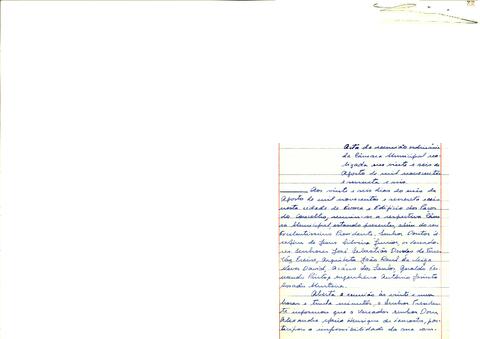 Acta da reunião ordinária
da Câmara Municipal rea-
lizada nos vinte e seis de
Agosto de mil novecentos
e noventa e
Aos vinte e seis dias do mês de
Agosto de mil novecentos e noventa e
nesta cidade de Évora e Edifício dos Paços
do Concelho, reuniu-se a respectiva Câma-
ra Municipal estando presentes, além do seu
Excelentíssimo Presidente, Senhor Doutor
de Jesus Silveira Júnior, os Vereado-
res Senhores José Sebastião de
Vaz Freire, Arquitecto João Raul da
David, dos Santos, Geraldo Fer-
nando Pinto, engenheiro António Jacinto
Mantana.
Aberta a reunião às vinte e uma
horas e trinta minutos, o Senhor Presiden-
te informou que o Vereador senhor Dom
Alexandre Maria Henrique de Lencastre, par-
ticipara a impossibilidade da sua com-